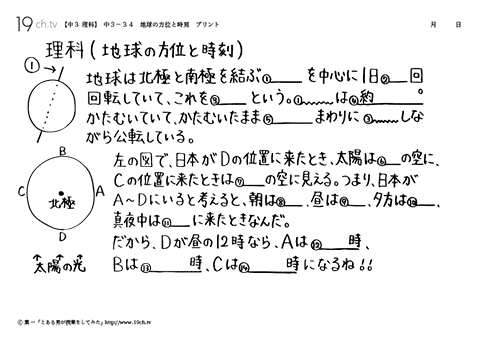 19 ch.tv 【中3 理科】 中3-34 地球の方位と時刻 プリント 月 日
理科(地球の方位と時刻)
①
地球は北極と南極を結ぶ①___を中心に1日②___回
回転していて、これを③___という。①___は④約___°
かたむいていて、かたむいたまま⑤___まわりに③___しな
がら公転している。
B
C
A
北極
D
太陽の光
左の図で、日本がDの位置に来たとき、太陽は⑥___の空に、
Cの位置に来たときは⑦___の空に見える。つまり、日本が
A~Dにいると考えると、朝は⑧___、昼は⑨___、夕方は⑩___、
真夜中は⑪___に来たときなんだ。
だから、Dが昼の12時なら、Aは⑫___時、
Bは⑬___時、Cは⑭___時になるね!!
© 葉一「とある男が授業をしてみた」http://www.19ch.tv